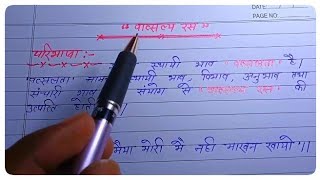 DATE
PAGE NO
" वात्सल्य रस "
परिभाषा :-
स्थायी भाव "वत्सलता" है।
वत्सलता नामक स्थायी भाव, विभाव, अनुभाव तथा
संचारी भाव संयोग से "वात्सल्य रस" की
उत्पत्ति होती
मैया मोरी मै नही माखन खायो"॥